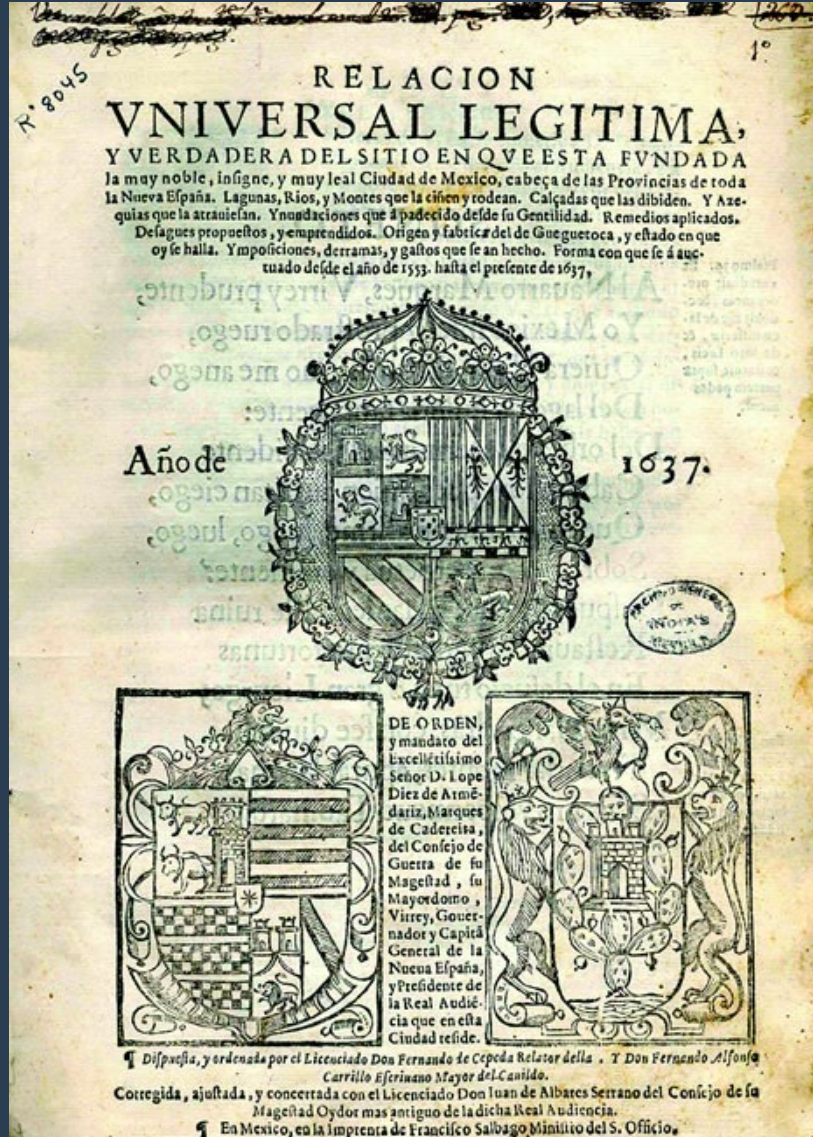 R° 8045
1°
RELACION
VNIVERSAL LEGITIMA,
Y VERDADERA DEL SITIO EN QVE ESTA FVNDADA
la muy noble, insigne, y muy leal Ciudad de Mexico, cabeça de las Provincias de toda
la Nueva España. Lagunas, Rios, y Montes que la ciñen y rodean. Calçadas que las dibiden. Y Aze-
quias que la atrauiesan. Ynundaciones que à padecido desde su Gentilidad. Remedios aplicados.
Desagues propuestos, y emprendidos. Origen y fabrica del de Gueguetoca, y estado en que
oy se halla. Ymposiciones, derramas, y gastos que se an hecho. Forma con que se á auc-
tuado desde el año de 1553. hasta el presente de 1637,
Año de 1637.
INDIAS
DE ORDEN,
y mandato del
Excellẽtissimo
Señor D. Lope
Diez de Armẽ-
dariz, Marques
de Cadereita,
del Consejo de
Guerra de su
Magestad, su
Mayordomo,
Virrey, Gouer-
nador y Capitã
General de la
Nueua España,
y Presidente de
la Real Audiẽ-
cia que en esta
Ciudad reside.
¶ Dispuesta, y ordenada por el Licenciado Don Fernando de Cepeda Relator della, Y Don Fernando Alfonso
Carrillo Escriuano Mayor del Cauildo.
Corregida, ajustada, y concertada con el Licenciado Don Iuan de Albares Serrano del Consejo de su
Magestad Oydor mas antiguo de la dicha Real Audiencia.
¶ En Mexico, en la Imprenta de Francisco Salbago Ministro del S. Officio.